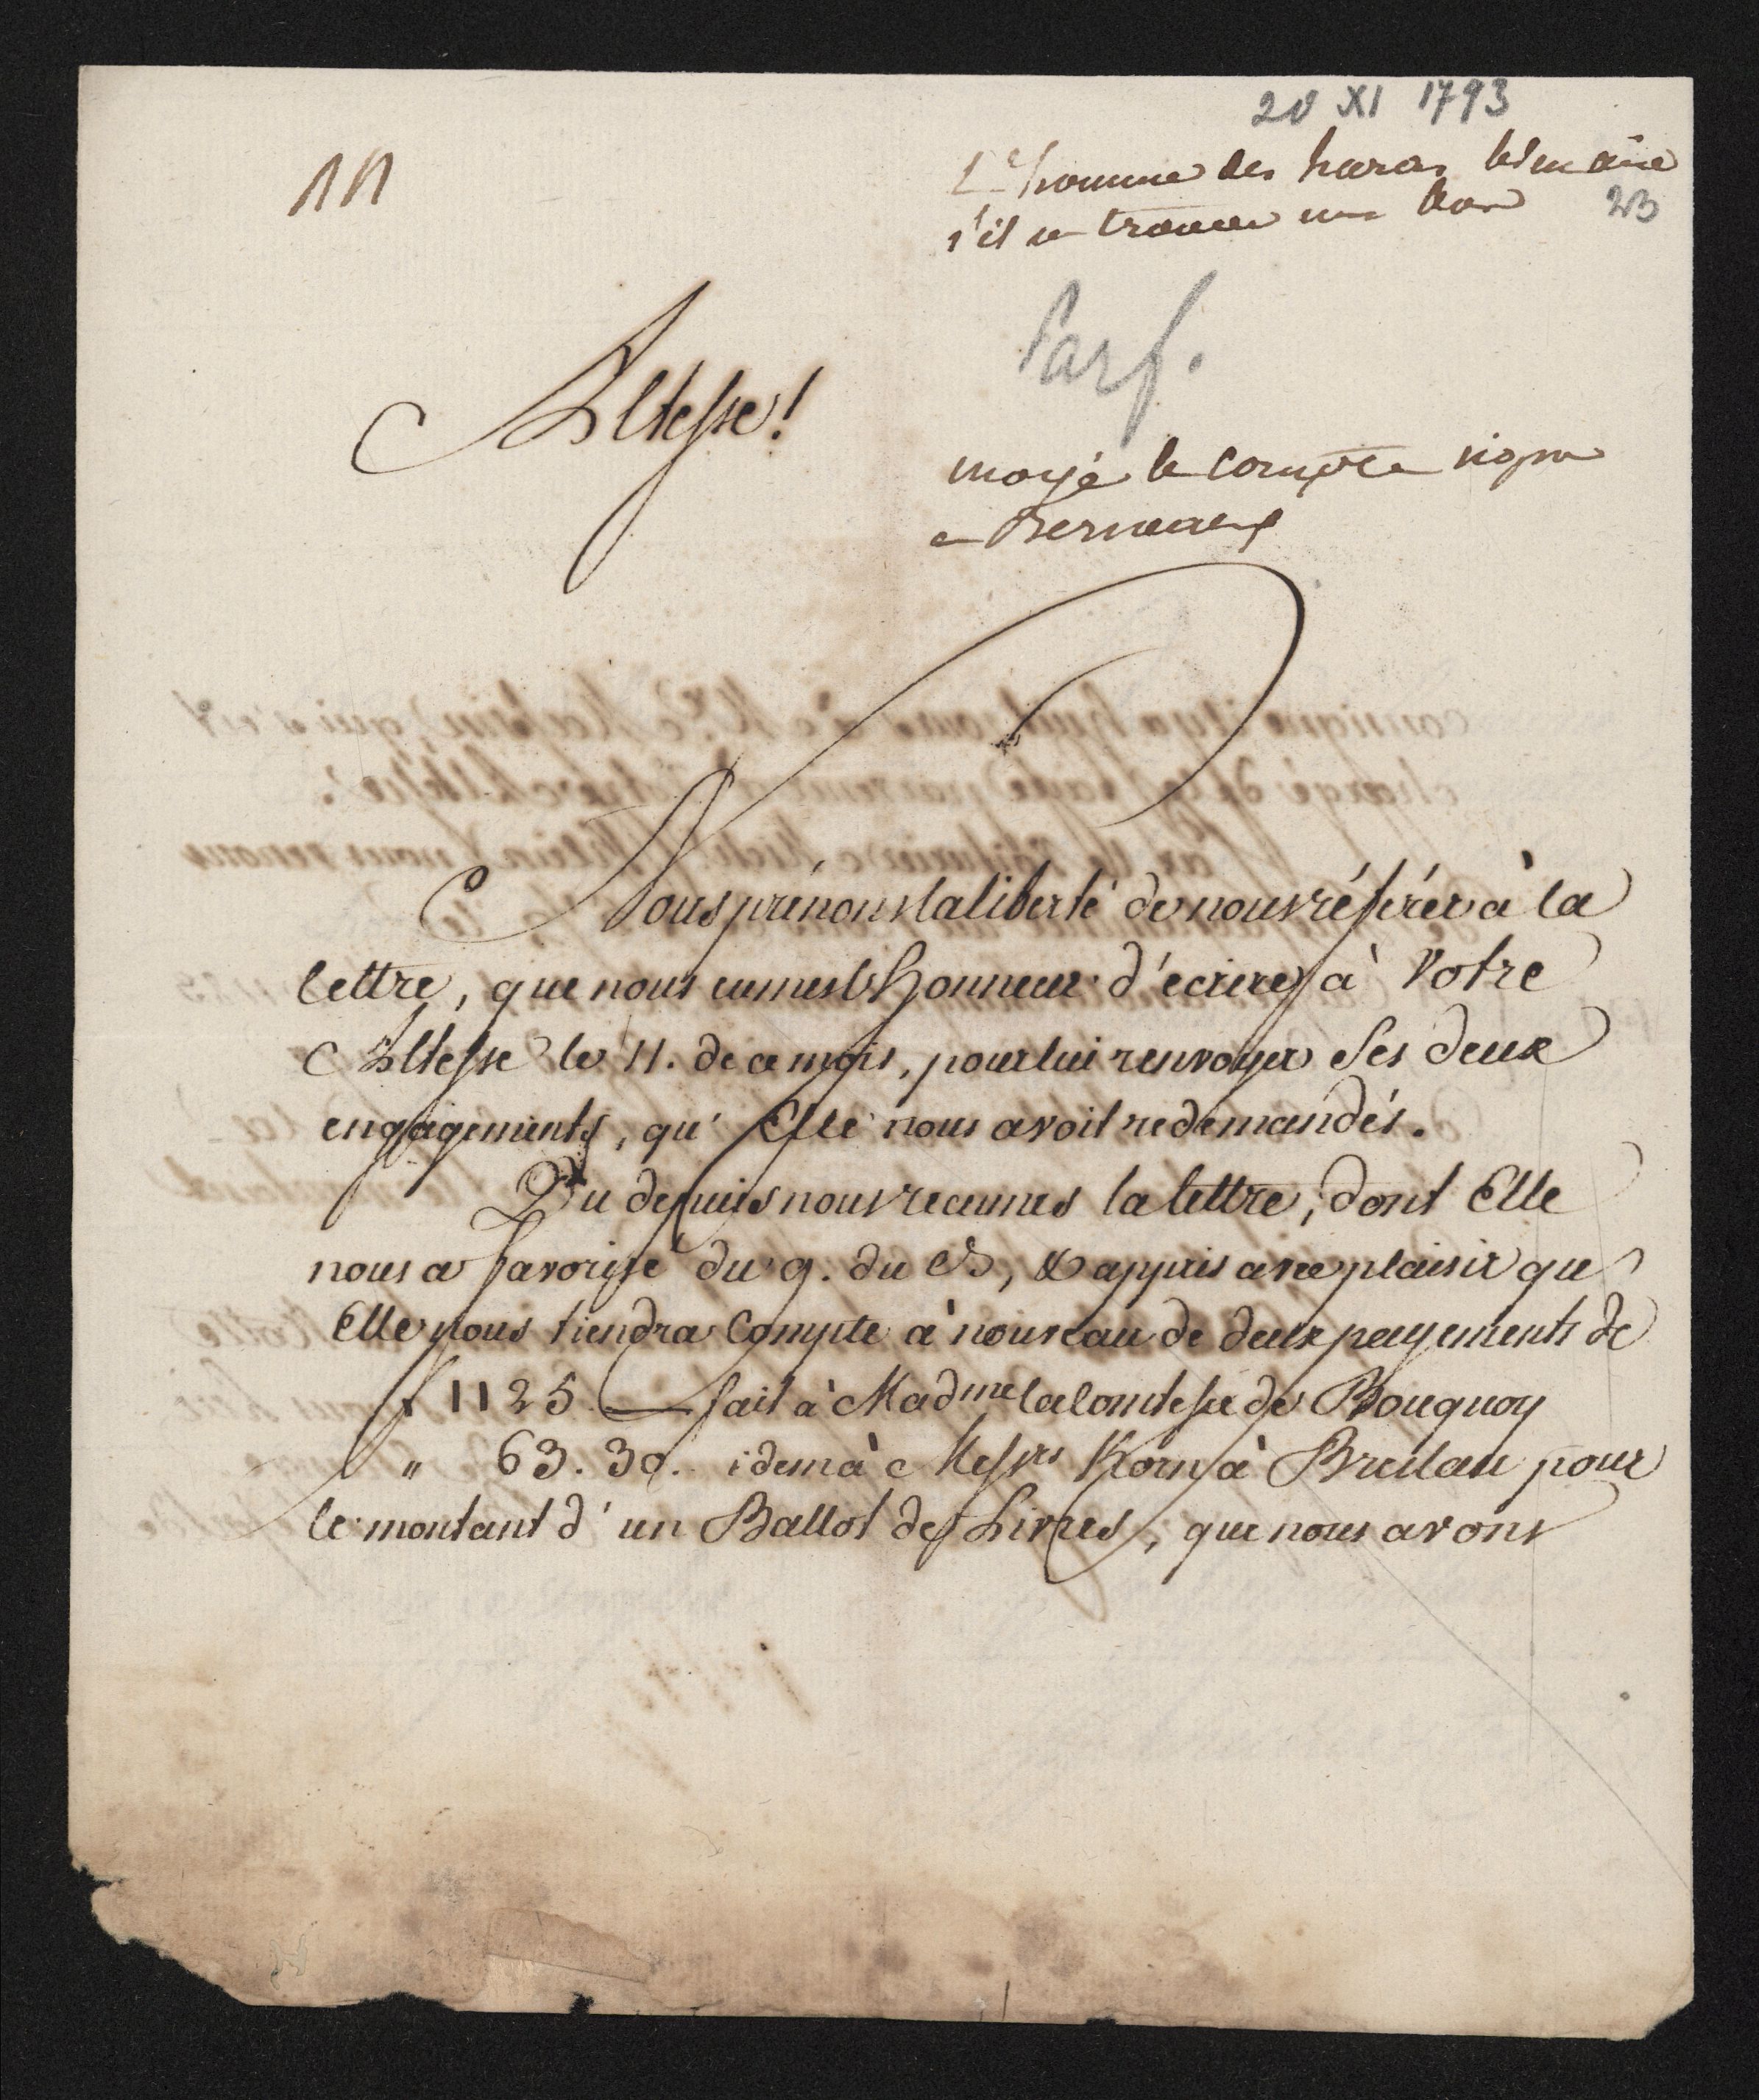 20 XI 1793
11
L'homme des haras
s'il se trouve un
23
Parf.
Altesse!
le compte
Nous prénons la liberté de nous référér à la
lettre, que nous eumes l'honneur d'ecrire à Votre
Altesse le 11. de ce mois, pour lui renvoyer Ses deux
engagements, qu' Elle nous avoit redemandés.
Du depuis nous recumes la lettre, dont Elle
nous a favorisé du 9. du C, & appris avec plaisir qu'
Elle nous tiendra Compte à nouveau de deux payements de
f 1125 — fait à Madme la Comtesse de Bouquoy
" 63. 30. idem à Messrs Korn à Breslau pour
le montant d' un Ballot de Livres, que nous avons